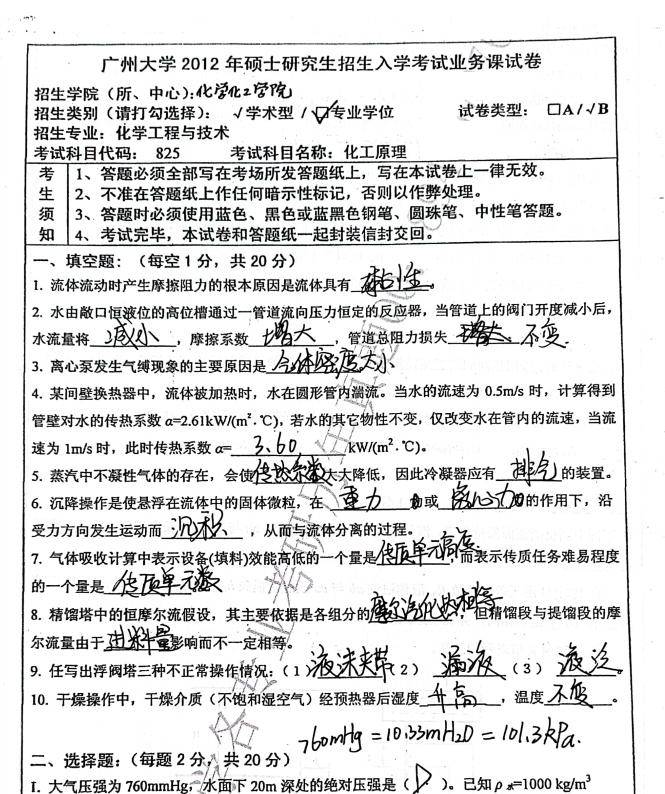 广州大学 2012 年硕士研究生招生入学考试业务课试卷
招生学院（所、中心）：化学化工学院
招生类别（请打勾选择）： √学术型 / □√专业学位 试卷类型： □A / √B
招生专业：化学工程与技术
考试科目代码： 825 考试科目名称：化工原理
考生须知
1、答题必须全部写在考场所发答题纸上，写在本试卷上一律无效。
2、不准在答题纸上作任何暗示性标记，否则以作弊处理。
3、答题时必须使用蓝色、黑色或蓝黑色钢笔、圆珠笔、中性笔答题。
4、考试完毕，本试卷和答题纸一起封装信封交回。
一、填空题：（每空 1 分，共 20 分）
1. 流体流动时产生摩擦阻力的根本原因是流体具有 黏性 。
2. 水由敞口恒液位的高位槽通过一管道流向压力恒定的反应器，当管道上的阀门开度减小后，
水流量将 减小 ，摩擦系数 增大 ，管道总阻力损失 增大 不变。
3. 离心泵发生气缚现象的主要原因是 气体密度太小
4. 某间壁换热器中，流体被加热时，水在圆形管内湍流。当水的流速为 0.5m/s 时，计算得到
管壁对水的传热系数 α=2.61kW/(m²·℃)，若水的其它物性不变，仅改变水在管内的流速，当流
速为 1m/s 时，此时传热系数 α= 3.60 kW/(m²·℃)。
5. 蒸汽中不凝性气体的存在，会使传热系数大大降低，因此冷凝器应有 排气 的装置。
6. 沉降操作是使悬浮在流体中的固体微粒，在 重力 或 离心力 的作用下，沿
受力方向发生运动而 沉积 ，从而与流体分离的过程。
7. 气体吸收计算中表示设备(填料)效能高低的一个量是 传质单元高度 ，而表示传质任务难易程度
的一个量是 传质单元数
8. 精馏塔中的恒摩尔流假设，其主要依据是各组分的 摩尔汽化热相等 ，但精馏段与提馏段的摩
尔流量由于 进料量 影响而不一定相等。
9. 任写出浮阀塔三种不正常操作情况：（1） 液沫夹带（2） 漏液 （3） 液泛 。
10. 干燥操作中，干燥介质（不饱和湿空气）经预热器后湿度 升高 ，温度 不变 。
760mmHg = 10.33mH₂O = 101.3kPa.
二、选择题：（每题 2 分，共 20 分）
1. 大气压强为 760mmHg，水面下 20m 深处的绝对压强是（ D ）。已知 ρ水=1000 kg/m³